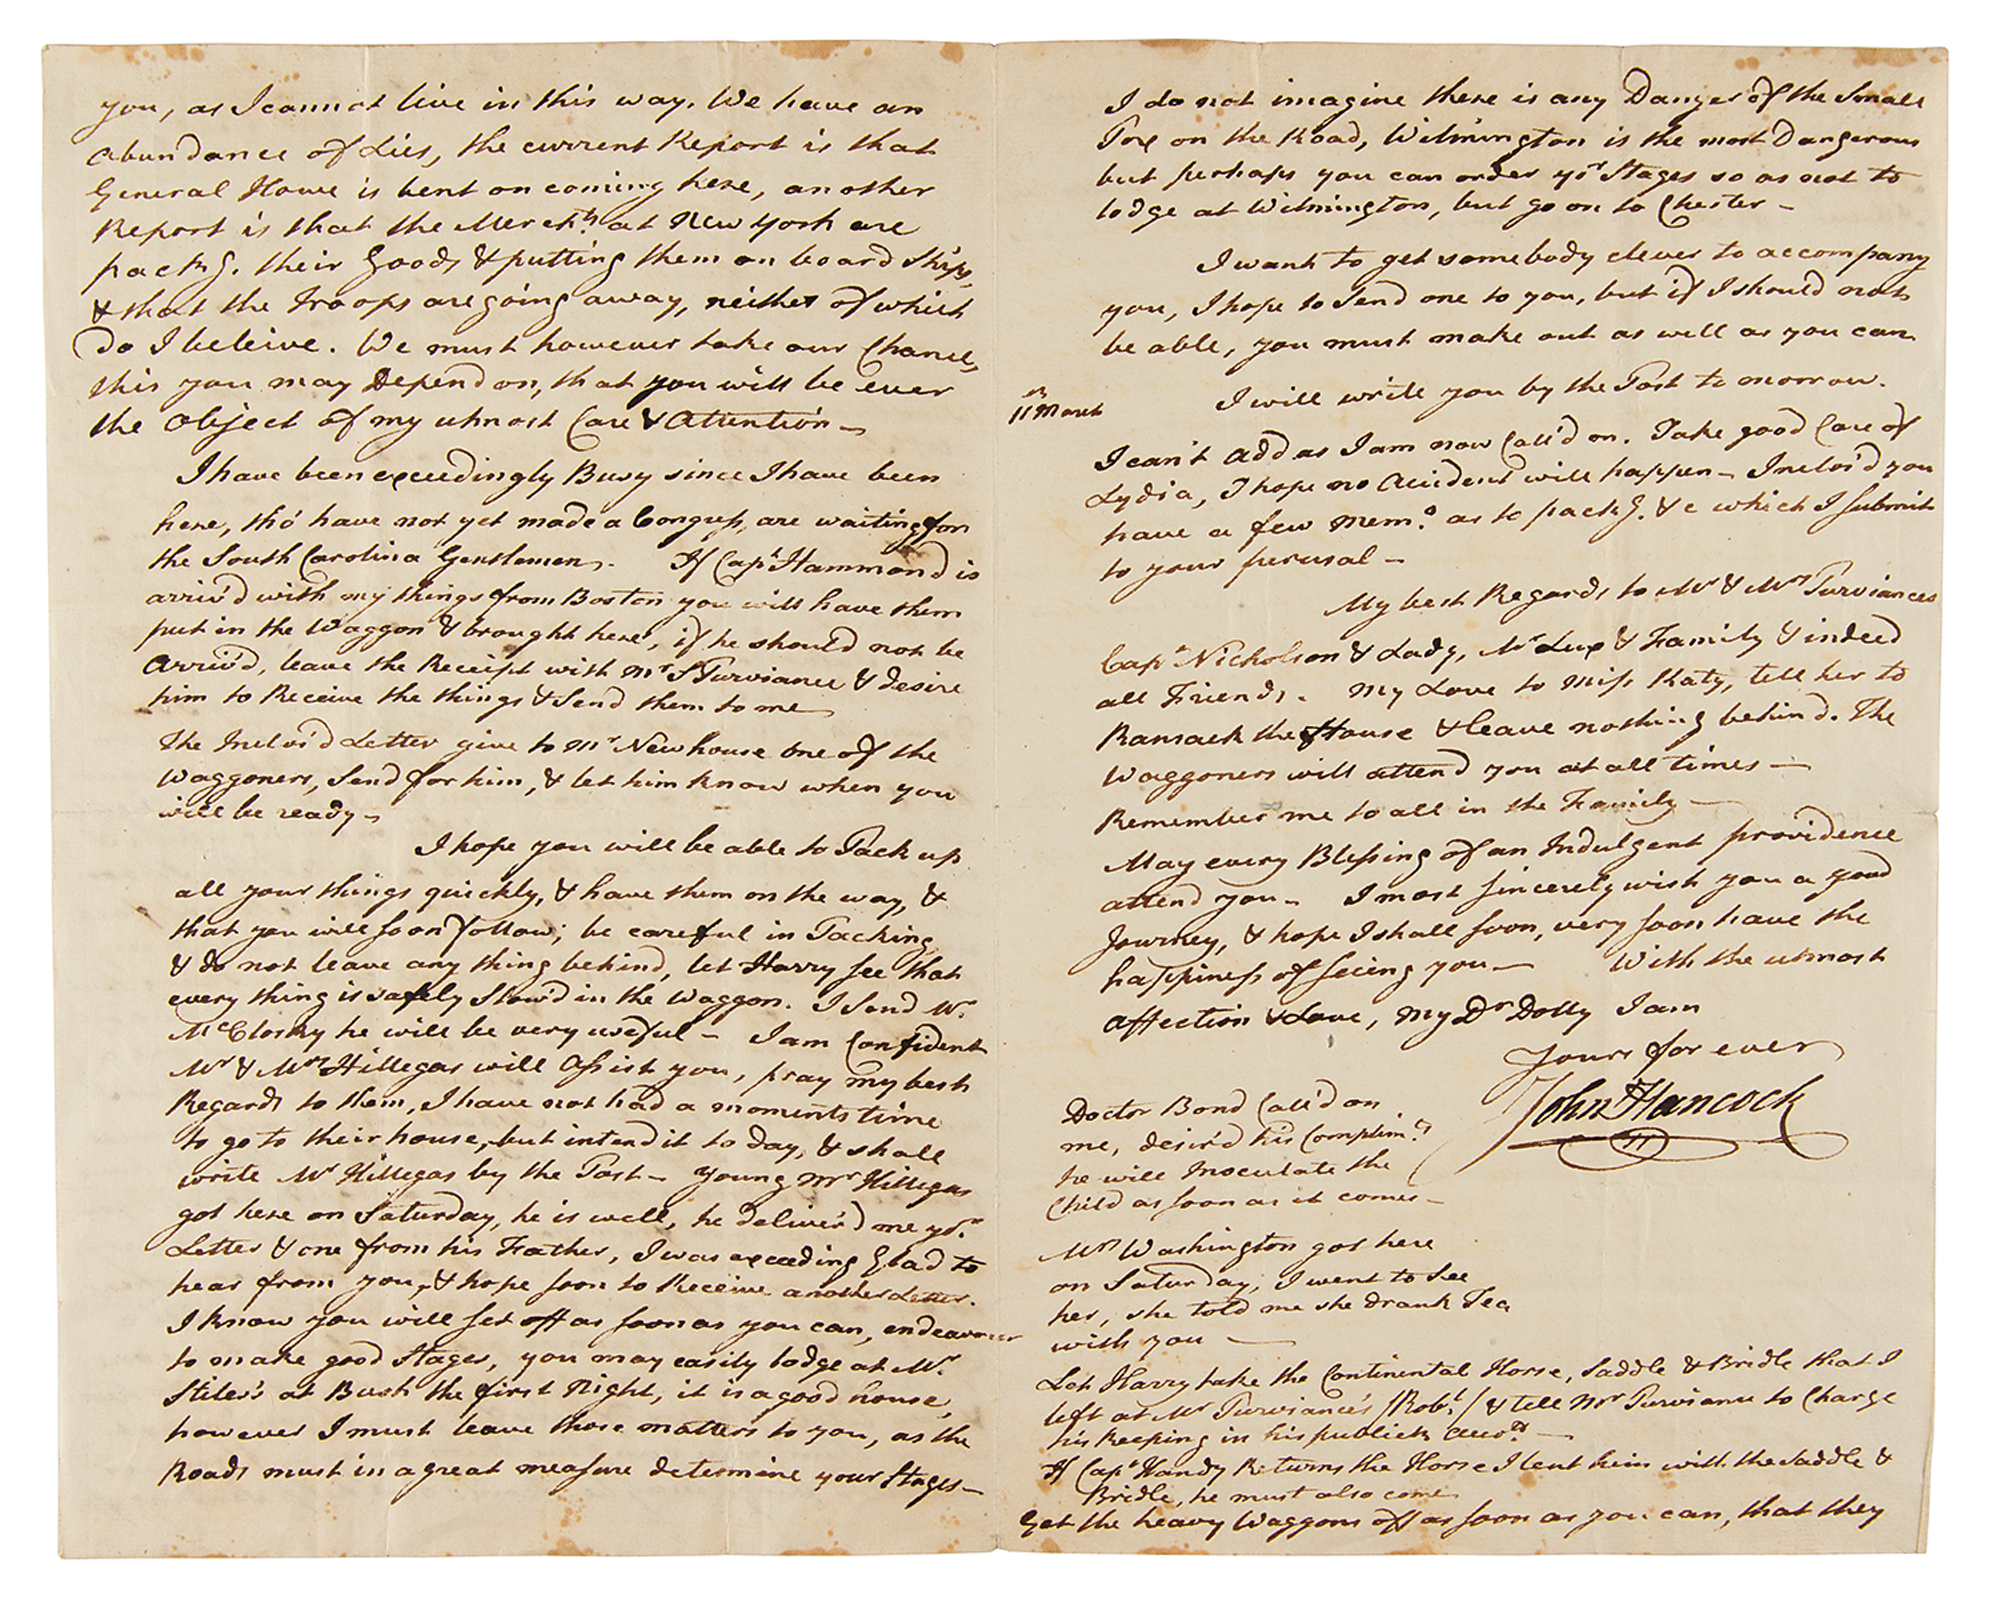 you, as I cannot live in this way. We have an
abundance of Lies, the current Report is that
General Howe is bent on coming here, another
Report is that the Merchts. at New York are
packg. their Goods & putting them on board Ships,
& that the Troops are going away, neither of which
do I beleive. We must however take our Chance,
this you may Depend on, that you will be ever
the object of my utmost Care & Attention —
I have been exceedingly Busy since I have been
here, tho' have not yet made a Congress, are waiting for
the South Carolina Gentlemen. If Capt Hammond is
arriv'd with my things from Boston you will have them
put in the Waggon & brought here, if he should not be
Arriv'd, leave the Receipt with Mr S Purviance & desire
him to Receive the things & Send them to me
The Inclos'd Letter give to Mr Newhouse one of the
Waggoners, Send for him, & let him know when you
will be ready —
I hope you will be able to Pack up
all your things quickly, & have them on the way, &
that you will soon follow; be careful in Packing,
& do not leave any thing behind, let Harry see that
every thing is safely Stow'd in the Waggon. I Send Mr.
McClosky he will be very useful — I am Confident
Mr & Mrs Hillegas will Assist you, pray my best
Regards to them, I have not had a moments time
to go to their house, but intend it to day, & shall
write Mr Hillegas by the Post — Young Mr Hillegas
got here on Saturday, he is well, he deliver'd me yor.
Letter & one from his Father, I was exceeding Glad to
hear from you, & hope soon to Receive another Letter.
I know you will set off as soon as you can, endeavour
to make good Stages, you may easily lodge at Mr.
Stiles's at Bush the first Night, it is a good house,
however I must leave those matters to you, as the
Roads must in a great measure determine your Stages —
I do not imagine there is any Danger of the Small
Pox on the Road, Wilmington is the most Dangerous
but perhaps you can order yor Stages so as not to
lodge at Wilmington, but go on to Chester —
I want to get somebody clever to accompany
you, I hope to Send one to you, but if I should not
be able, you must make out as well as you can
I will write you by the Post to morrow.
11 March
I can't Add as I am now Call'd on. Take good Care of
Lydia, I hope no Accident will happen — Inclos'd you
have a few Memo. as to packg. &c which I submit
to your perusal —
My best Regards to Mr & Mrs Purviances
Capt Nicholson & Lady, Mr Lux & Family & indeed
all Friends. My Love to Miss Katy, tell her to
Ransack the House & leave nothing behind. The
Waggoners will attend you at all times —
Remember me to all in the Family —
May every Blessing of an Indulgent providence
attend you — I most sincerely wish you a good
Journey, & hope I shall soon, very soon have the
happiness of seeing you — With the utmost
Affection & Love, My Dr Dolly I am
Yours for ever
John Hancock
Doctor Bond Call'd on
me, desir'd his Complimts
he will Inoculate the
Child as soon as it comes —
Mrs Washington got here
on Saturday, I went to See
her, she told me she drank Tea
with you —
Let Harry take the Continental Horse, Saddle & Bridle that I
left at Mr Purviance's /Robt./ & tell Mr Purviance to Charge
his keeping in his publick Accots. —
If Capt Hardy Returns the Horse I lent him with the Saddle &
Bridle, he must also come
Get the heavy Waggons off as soon as you can, that they